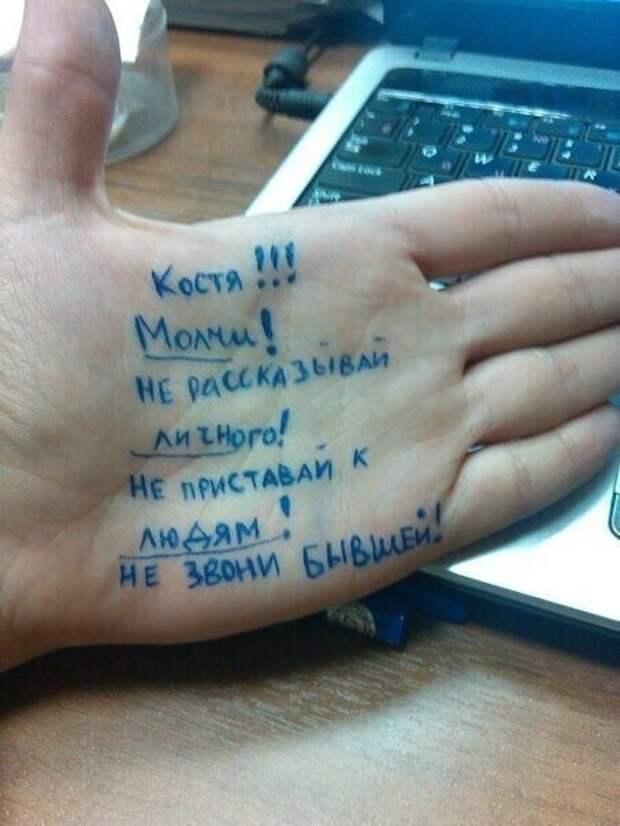 Костя !!!
Молчи!
НЕ РАССКАЗЫВАЙ
ЛИЧНОГО!
НЕ ПРИСТАВАЙ К
ЛЮДЯМ!
НЕ ЗВОНИ БЫВШЕЙ!
Caps Lock
Q W E R